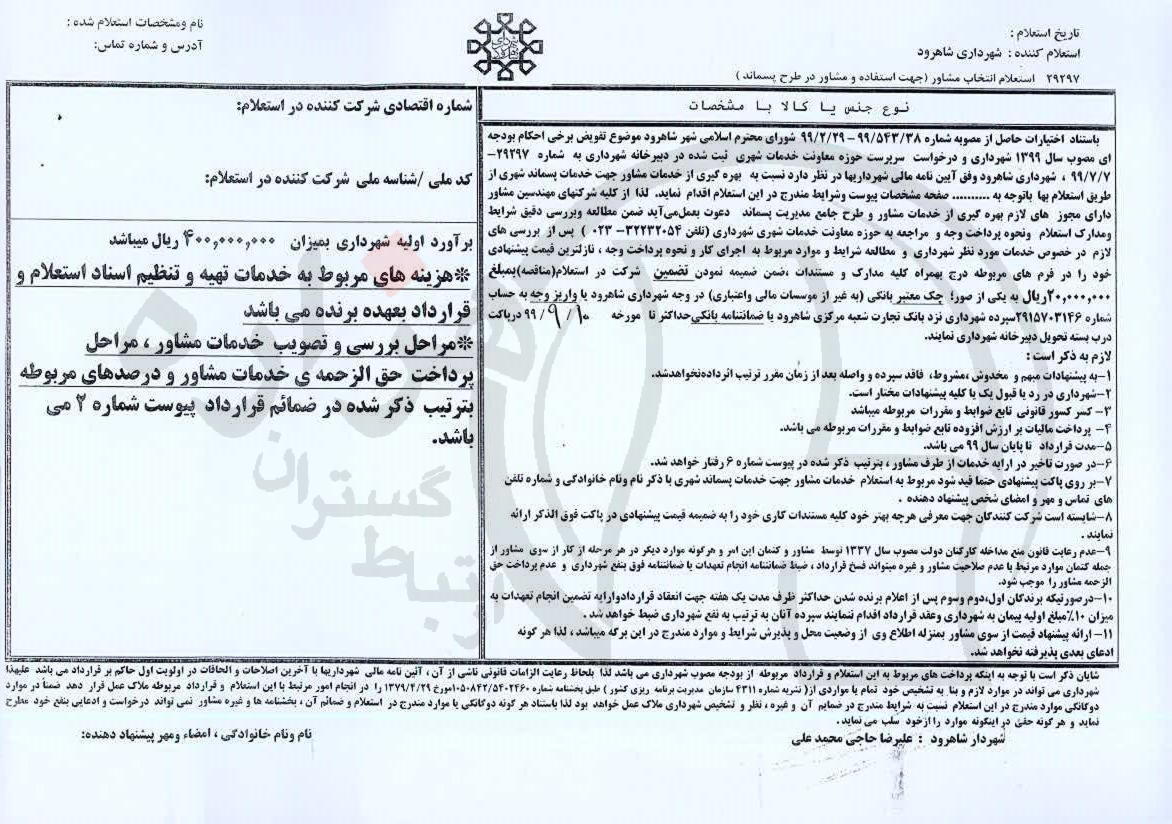 تاریخ استعلام :
استعلام کننده : شهرداری شاهرود
۲۹۲۹۷ استعلام انتخاب مشاور (جهت استفاده و مشاور در طرح پسماند )
نام ومشخصات استعلام شده :
آدرس و شماره تماس:
نوع جنس یا کالا با مشخصات
باستناد اختیارات حاصل از مصوبه شماره ۹۹/۵۴۳/۳۸ – ۹۹/۲/۲۹ شورای محترم اسلامی شهر شاهرود موضوع تفویض برخی احکام بودجه
ای مصوب سال ۱۳۹۹ شهرداری و درخواست سرپرست حوزه معاونت خدمات شهری ثبت شده در دبیرخانه شهرداری به شماره ۲۹۲۹۷–
۹۹/۷/۷ ، شهرداری شاهرود وفق آیین نامه مالی شهرداریها در نظر دارد نسبت به بهره گیری از خدمات مشاور جهت خدمات پسماند شهری از
طریق استعلام بها باتوجه به .......... صفحه مشخصات پیوست وشرایط مندرج در این استعلام اقدام نماید. لذا از کلیه شرکتهای مهندسین مشاور
دارای مجوز های لازم بهره گیری از خدمات مشاور و طرح جامع مدیریت پسماند دعوت بعمل‌می‌آید ضمن مطالعه وبررسی دقیق شرایط
ومدارک استعلام ونحوه پرداخت وجه و مراجعه به حوزه معاونت خدمات شهری شهرداری (تلفن ۳۲۲۳۲۰۵۴– ۰۲۳ ) پس از بررسی های
لازم در خصوص خدمات مورد نظر شهرداری و مطالعه شرایط و موارد مربوط به اجرای کار و نحوه پرداخت وجه ، نازلترین قیمت پیشنهادی
خود را در فرم های مربوطه درج بهمراه کلیه مدارک و مستندات ،ضمن ضمیمه نمودن تضمین شرکت در استعلام(مناقصه)بمبلغ
۲۰,۰۰۰,۰۰۰ریال به یکی از صور؛ چک معتبر بانکی (به غیر از موسسات مالی واعتباری) در وجه شهرداری شاهرود یا واریز وجه به حساب
شماره ۲۹۱۵۷۰۳۱۴۶سپرده شهرداری نزد بانک تجارت شعبه مرکزی شاهرود یا ضمانتنامه بانکی‌حداکثر تا مورخه ۹۹/۹/۱۰ درپاکت
درب بسته تحویل دبیرخانه شهرداری نمایند.
لازم به ذکر است :
۱–به پیشنهادات مبهم و مخدوش ،مشروط، فاقد سپرده و واصله بعد از زمان مقرر ترتیب اثرداده‌نخواهدشد.
۲–شهرداری در رد یا قبول یک یا کلیه پیشنهادات مختار است.
۳– کسر کسور قانونی تابع ضوابط و مقررات مربوطه میباشد
۴– پرداخت مالیات بر ارزش افزوده تابع ضوابط و مقررات مربوطه می باشد.
۵–مدت قرارداد تا پایان سال ۹۹ می باشد.
۶–در صورت تاخیر در ارایه خدمات از طرف مشاور ، بترتیب ذکر شده در پیوست شماره ۶ رفتار خواهد شد.
۷–بر روی پاکت پیشنهادی حتما قید شود مربوط به استعلام خدمات مشاور جهت خدمات پسماند شهری با ذکر نام ونام خانوادگی و شماره تلفن
های تماس و مهر و امضای شخص پیشنهاد دهنده .
۸–شایسته است شرکت کنندگان جهت معرفی هرچه بهتر خود کلیه مستندات کاری خود را به ضمیمه قیمت پیشنهادی در پاکت فوق الذکر ارائه
نمایند .
۹–عدم رعایت قانون منع مداخله کارکنان دولت مصوب سال ۱۳۳۷ توسط مشاور و کتمان این امر و هرگونه موارد دیگر در هر مرحله از کار از سوی مشاور از
جمله کتمان موارد مرتبط با عدم صلاحیت مشاور و غیره میتواند فسخ قرارداد ، ضبط ضمانتنامه انجام تعهدات یا ضمانتنامه فوق بنفع شهرداری و عدم پرداخت حق
الزحمه مشاور را موجب شود.
۱۰–درصورتیکه برندگان اول،دوم وسوم پس از اعلام برنده شدن حداکثر ظرف مدت یک هفته جهت انعقاد قراردادوارایه تضمین انجام تعهدات به
میزان ۱۰٪مبلغ اولیه پیمان به شهرداری وعقد قرارداد اقدام ننمایند سپرده آنان به ترتیب به نفع شهرداری ضبط خواهد شد .
۱۱– ارائه پیشنهاد قیمت از سوی مشاور بمنزله اطلاع وی از وضعیت محل و پذیرش شرایط و موارد مندرج در این برگه میباشد ، لذا هر گونه
ادعای بعدی پذیرفته نخواهد شد.
شماره اقتصادی شرکت کننده در استعلام:
کد ملی /شناسه ملی شرکت کننده در استعلام:
برآورد اولیه شهرداری بمیزان ۴۰۰,۰۰۰,۰۰۰ ریال میباشد
*هزینه های مربوط به خدمات تهیه و تنظیم اسناد استعلام و
قرارداد بعهده برنده می باشد
*مراحل بررسی و تصویب خدمات مشاور ، مراحل
پرداخت حق الزحمه ی خدمات مشاور و درصدهای مربوطه
بترتیب ذکر شده در ضمائم قرارداد پیوست شماره ۲ می
باشد.
گستران
ارتباط
شایان ذکر است با توجه به اینکه پرداخت های مربوط به این استعلام و قرارداد مربوطه از بودجه مصوب شهرداری می باشد لذا بلحاظ رعایت الزامات قانونی ناشی از آن ، آئین نامه مالی شهرداریها با آخرین اصلاحات و الحاقات در اولویت اول حاکم بر قرارداد می باشد علیهذا
شهرداری می تواند در موارد لازم و بنا به تشخیص خود تمام یا مواردی از( نشریه شماره ۴۳۱۱ سازمان مدیریت برنامه ریزی کشور ) طبق بخشنامه شماره ۱۰۵۰۸۴۲/۵۴۰۲۴۶۰مورخ ۱۳۷۹/۴/۲۹ را در انجام امور مرتبط با این استعلام و قرارداد مربوطه ملاک عمل قرار دهد ضمناً در موارد
دوگانکی موارد مندرج در این استعلام نسبت به شرایط مندرج در ضمایم آن و غیره ، نظر و تشخیص شهرداری ملاک عمل خواهد بود لذا باستناد هر گونه دوگانکی یا موارد مندرج در استعلام و ضمائم آن ، بخشنامه ها و غیره مشاور نمی تواند درخواست و ادعایی بنفع خود مطرح
نماید و هر گونه حقی در اینگونه موارد را ازخود سلب می نماید .
شهردار شاهرود : علیرضا حاجی محمد علی
نام ونام خانوادگی ، امضاء ومهر پیشنهاد دهنده: